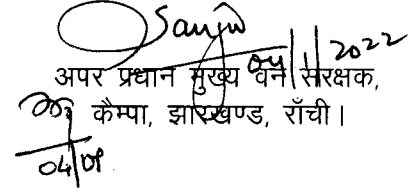 Sanjiv
04/1/2022
अपर प्रधान मुख्य वन संरक्षक,
कैम्पा, झारखण्ड, राँची।
04/01